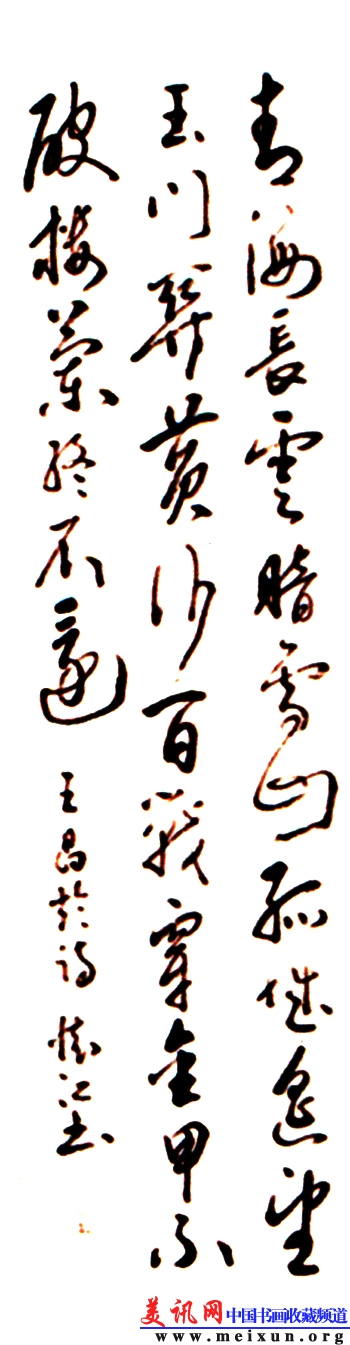 青海長雲暗雪山孤城遙望
玉门關黄沙百戰穿金甲不
破樓蘭終不還 王昌齡詩 懷江書
美讯网中国书画收藏频道
www.meixun.org